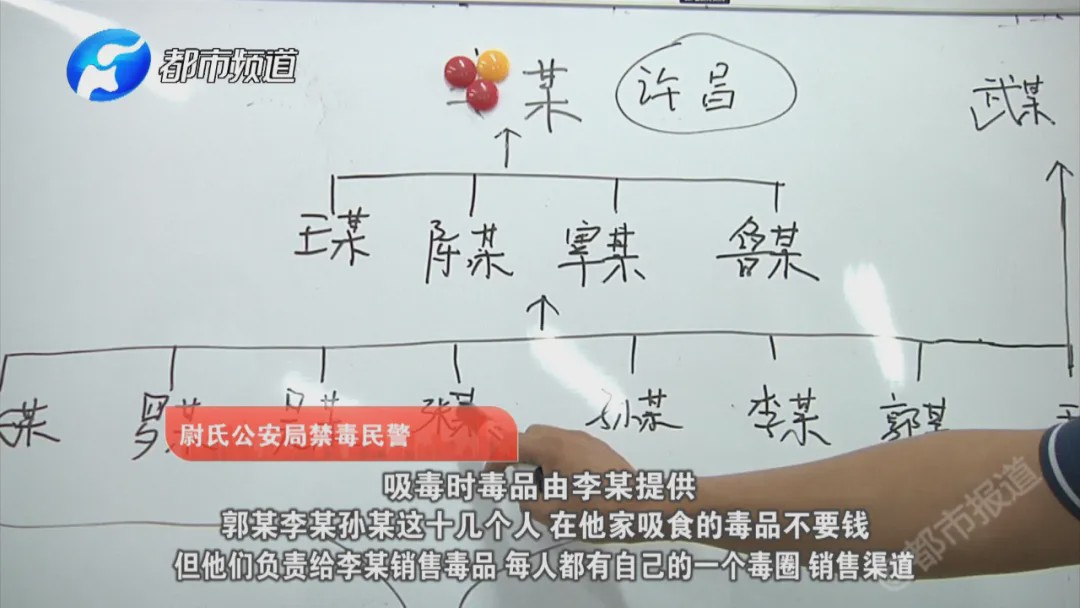 都市频道
某 许昌
武某
王某 陈某 覃某 鲁某
某 罗某 吴某 张某 孙某 李某 郭某 王
尉氏公安局禁毒民警
吸毒时毒品由李某提供
郭某李某孙某这十几个人 在他家吸食的毒品不要钱
但他们负责给李某销售毒品 每人都有自己的一个毒圈 销售渠道
@都市报道